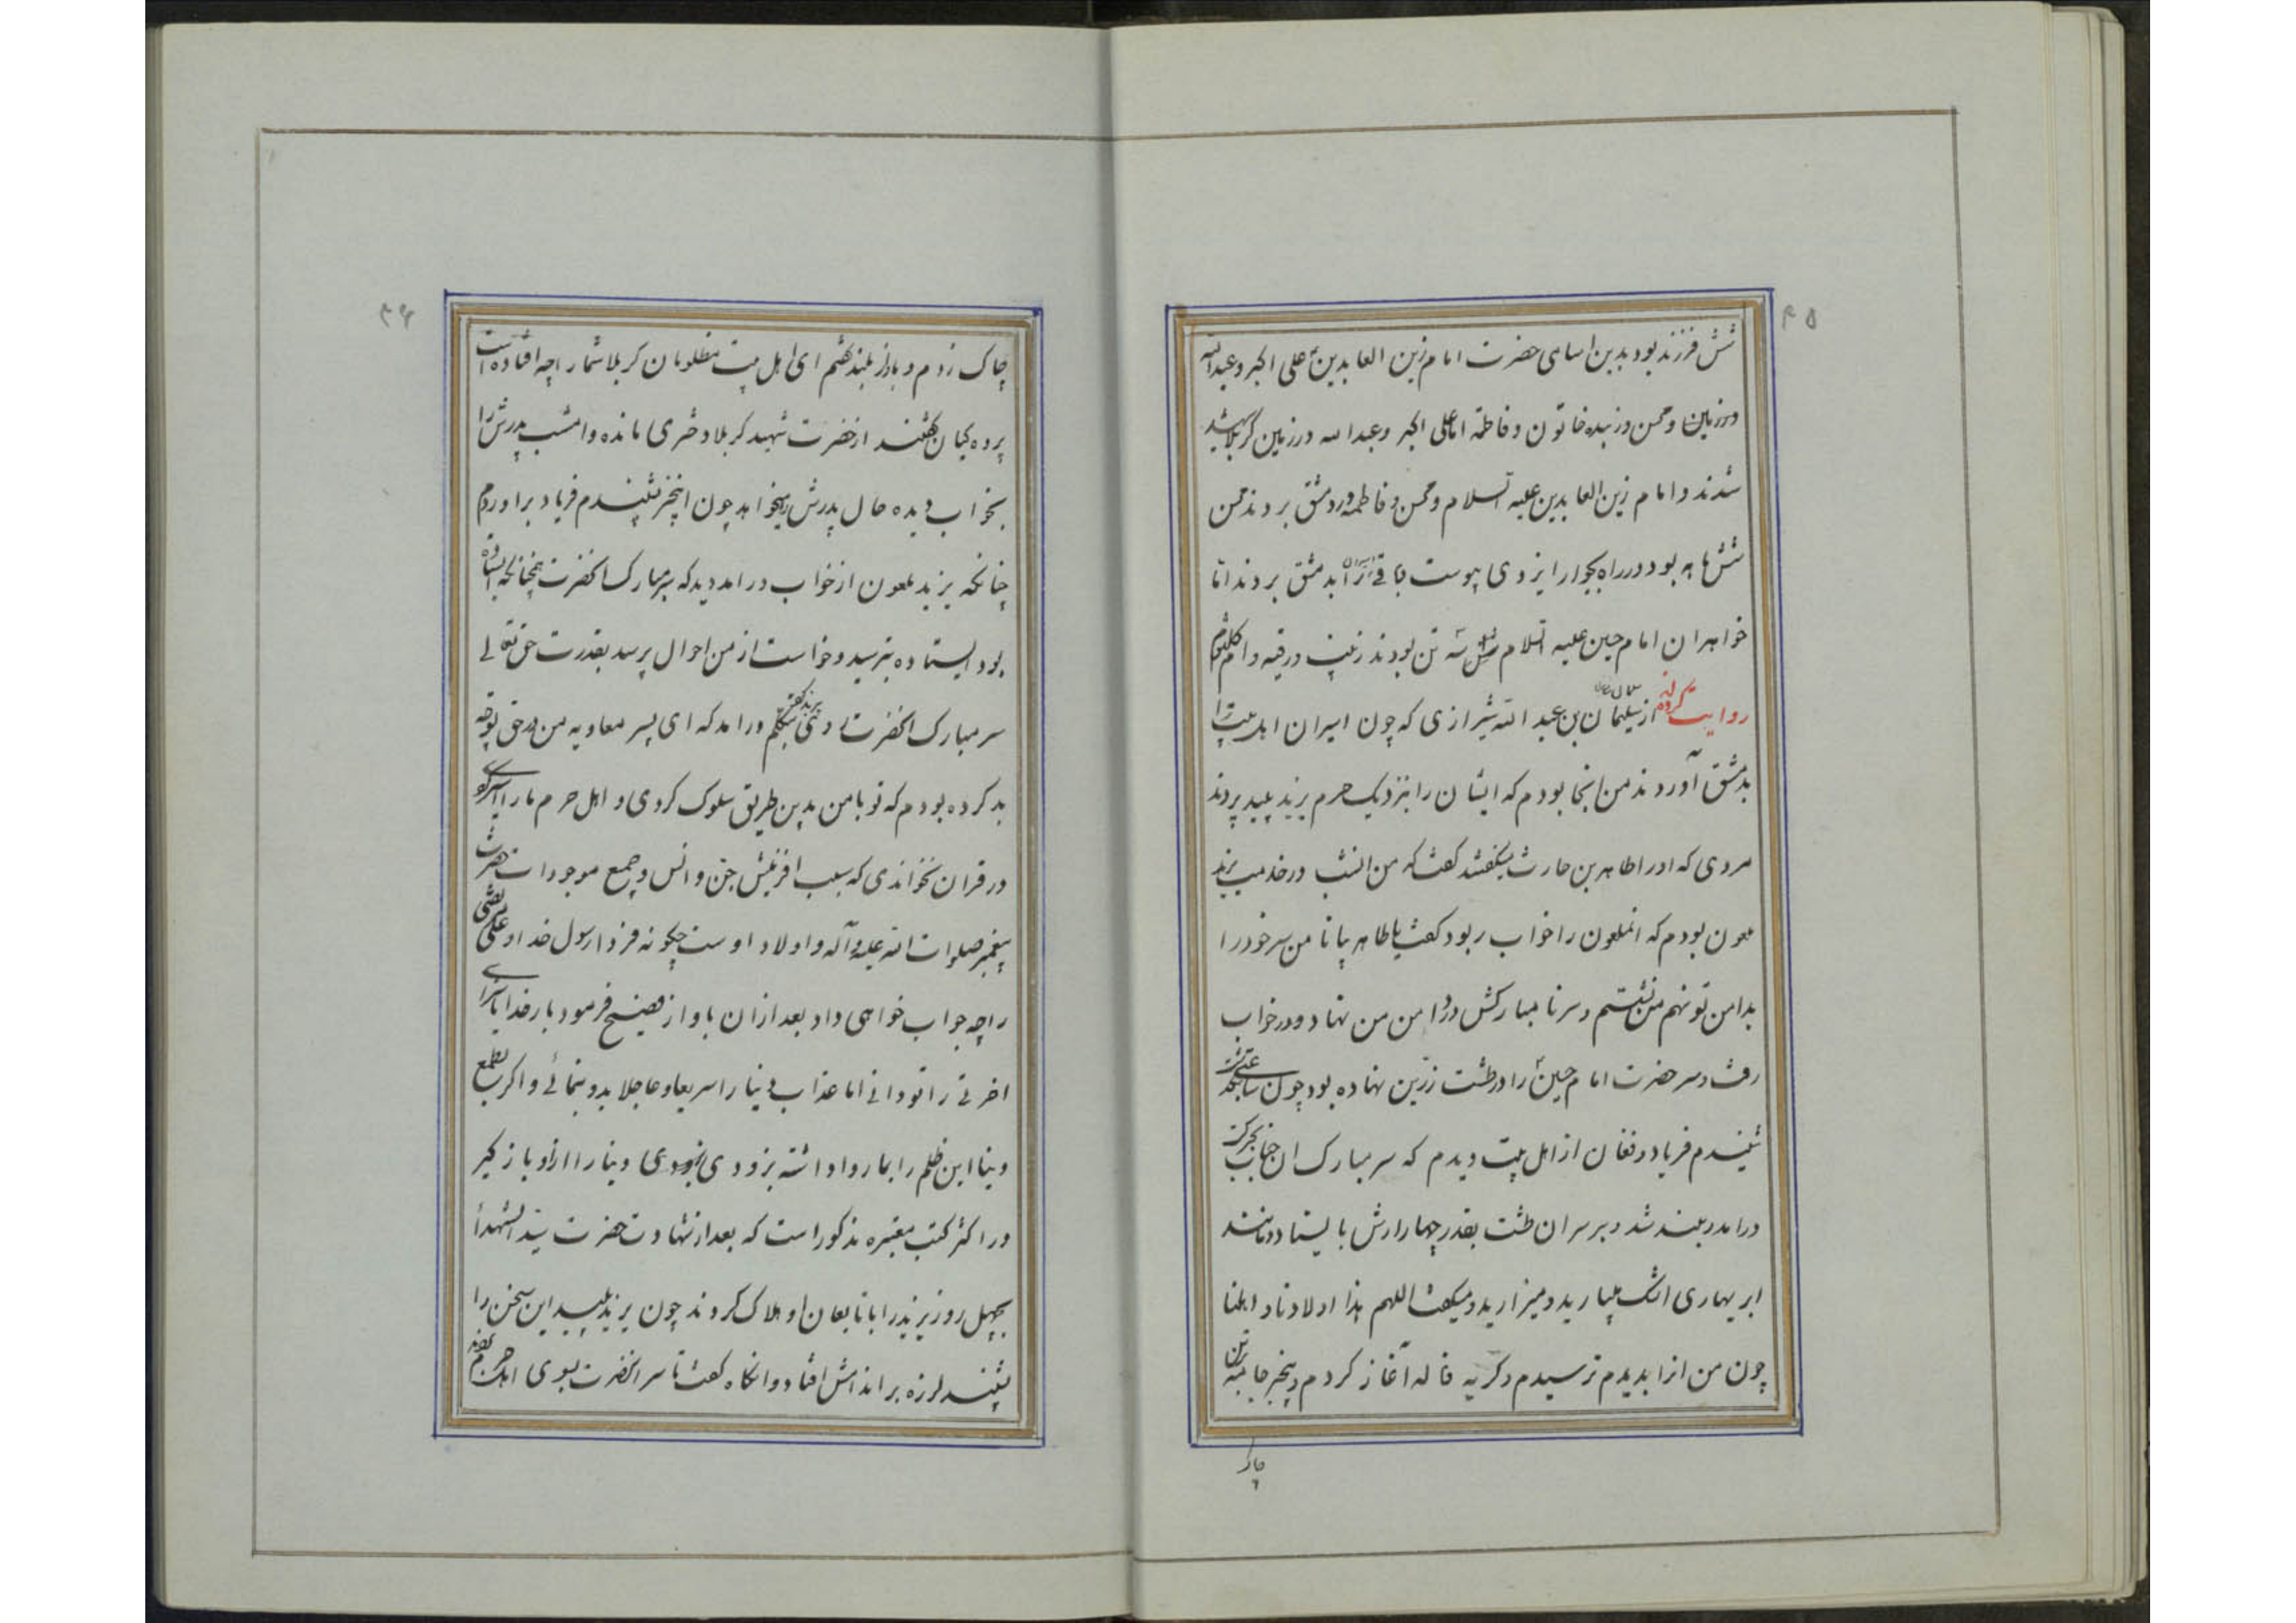 ۴۵
شش فرزند بود بدین اسامی حضرت امام زین العابدینؑ علی اکبر و عبدالله
و محسن و زبیده خاتون و فاطمه اما علی اکبر و عبدالله در زمین کربلا شهید
شدند و امام زین العابدین علیه السلام و محسن و فاطمه در دمشق بردند محسن
شش ماهه بود در راه بجوار ایزدی پیوست باقی را بدمشق بردند اما
خواهران امام حسین علیه السلام سه تن بودند زینب و رقیه و ام کلثوم
روایت کرده اند از سلیمان بن عبدالله شیرازی که چون اسیران اهل بیت را
بدمشق آوردند من انجا بودم که ایشان را بنزدیک حرم یزید پلید بردند
مردی که او را طاهر بن حارث میگفتند گفت که من انشب در خدمت یزید
ملعون بودم که انملعون را خواب ربود گفت یا طاهر بیا تا من سر خود را
بدامن تو نهم من نشستم و سر نا مبارکش در دامن من نهاد و در خواب
رفت و سر حضرت امام حسینؑ را در طشت زرین نهاده بود چون ساعتی بگذشت
شنیدم فریاد و فغان از اهل بیت دیدم که سر مبارک ان جناب بحرکت
درامد و بلند شد و بر سر ان طشت بقدر چهار ارش بایستاد و مانند
ابر بهاری اشک میبارید و میزارید و میگفت اللهم هذا اولادنا و اهلنا
چون من انرا بدیدم ترسیدم و گریه و ناله آغاز کردم و بنخبر جامه بتن
چاک
۴۶
چاک زدم و باواز بلند گفتم ای اهل بیت مظلومان کربلا شما را چه افتاده است
پرده کیان گفتند از حضرت شهید کربلا دختری مانده و امشب پدرش را
بخواب دیده حال پدرش میخواهد چون اینخبر شنیدم فریاد براوردم
چنانکه یزید ملعون از خواب درامد دید که سر مبارک انحضرت همچنانکه ایستاده
بود ایستاده بترسید و خواست از من احوال پرسد بقدرت حق تعالی
سر مبارک انحضرت با یزید گفتن در تکلم درامد که ای پسر معاویه من در حق تو چه
بد کرده بودم که تو با من بدین طریق سلوک کردی و اهل حرم ما را اسیر کردی
در قران نخواندی که سبب افرینش جن و انس و جمیع موجودات حضرت
پیغمبر صلوات الله علیه و آله و اولاد اوست چگونه فردا رسول خدا و علی مرتضی
را چه جواب خواهی داد بعد ازان باواز فصیح فرمود بار خدایا سزای
اخرتی را تو دانی اما عذاب دنیا را سریعا و عاجلا بدو بنمائی و اگر بطمع
دنیا این ظلم را بما روا داشته بزودی دنیا را ازو باز گیر
در اکثر کتب معتبره مذکور است که بعد از شهادت حضرت سید الشهدا
بچهل روز یزید را با تابعان او هلاک کردند چون یزید پلید این سخن را
بشنید لرزه بر اندامش افتاد و انکاه گفت تا سر انحضرت بسوی اهل حرم بردند